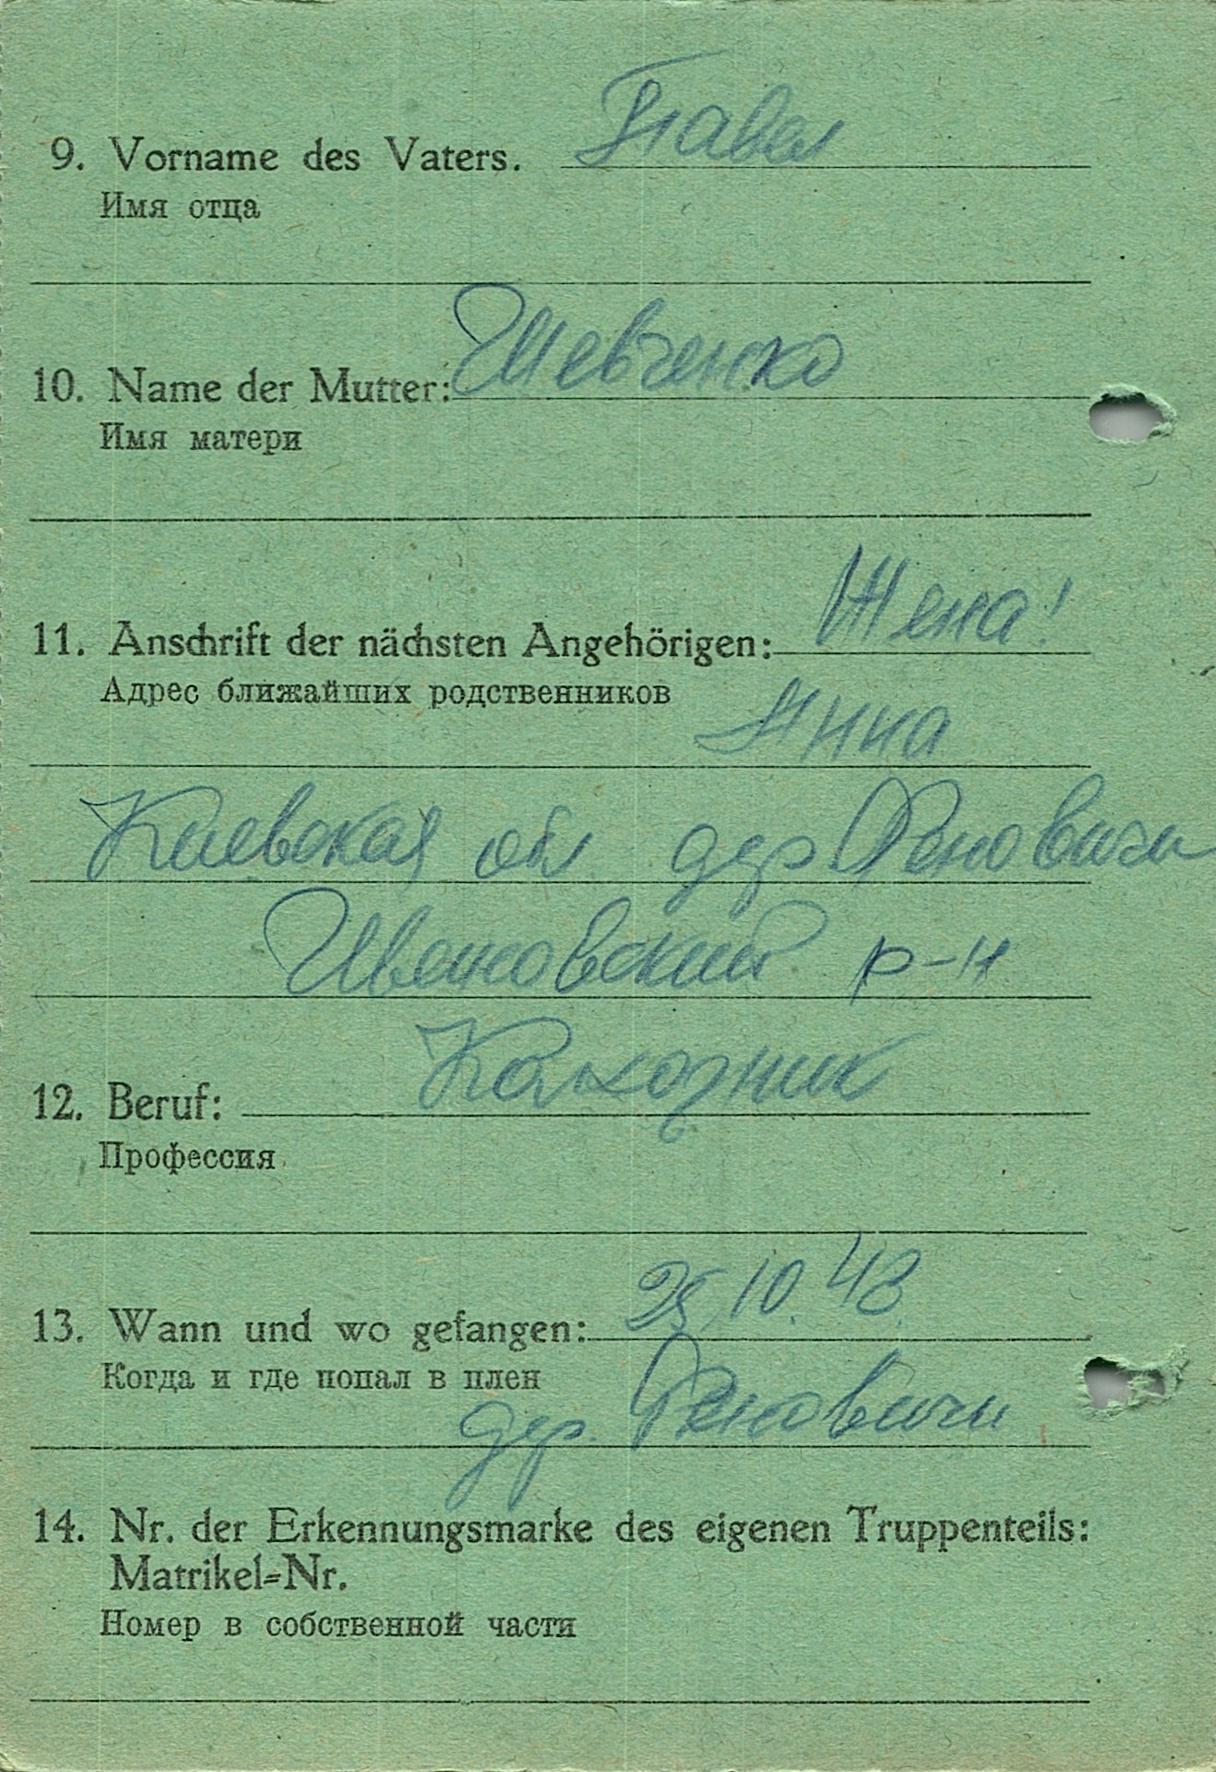 9. Vorname des Vaters. Павел
Имя отца
10. Name der Mutter: Шевченко
Имя матери
11. Anschrift der nächsten Angehörigen: Жена!
Адрес ближайших родственников
Анна
Киевская обл дер Феновичи
Ивановский р-н
12. Beruf: Колхозник
Профессия
13. Wann und wo gefangen: 25.10.43.
Когда и где попал в плен
дер. Феновичи
14. Nr. der Erkennungsmarke des eigenen Truppenteils:
Matrikel-Nr.
Номер в собственной части